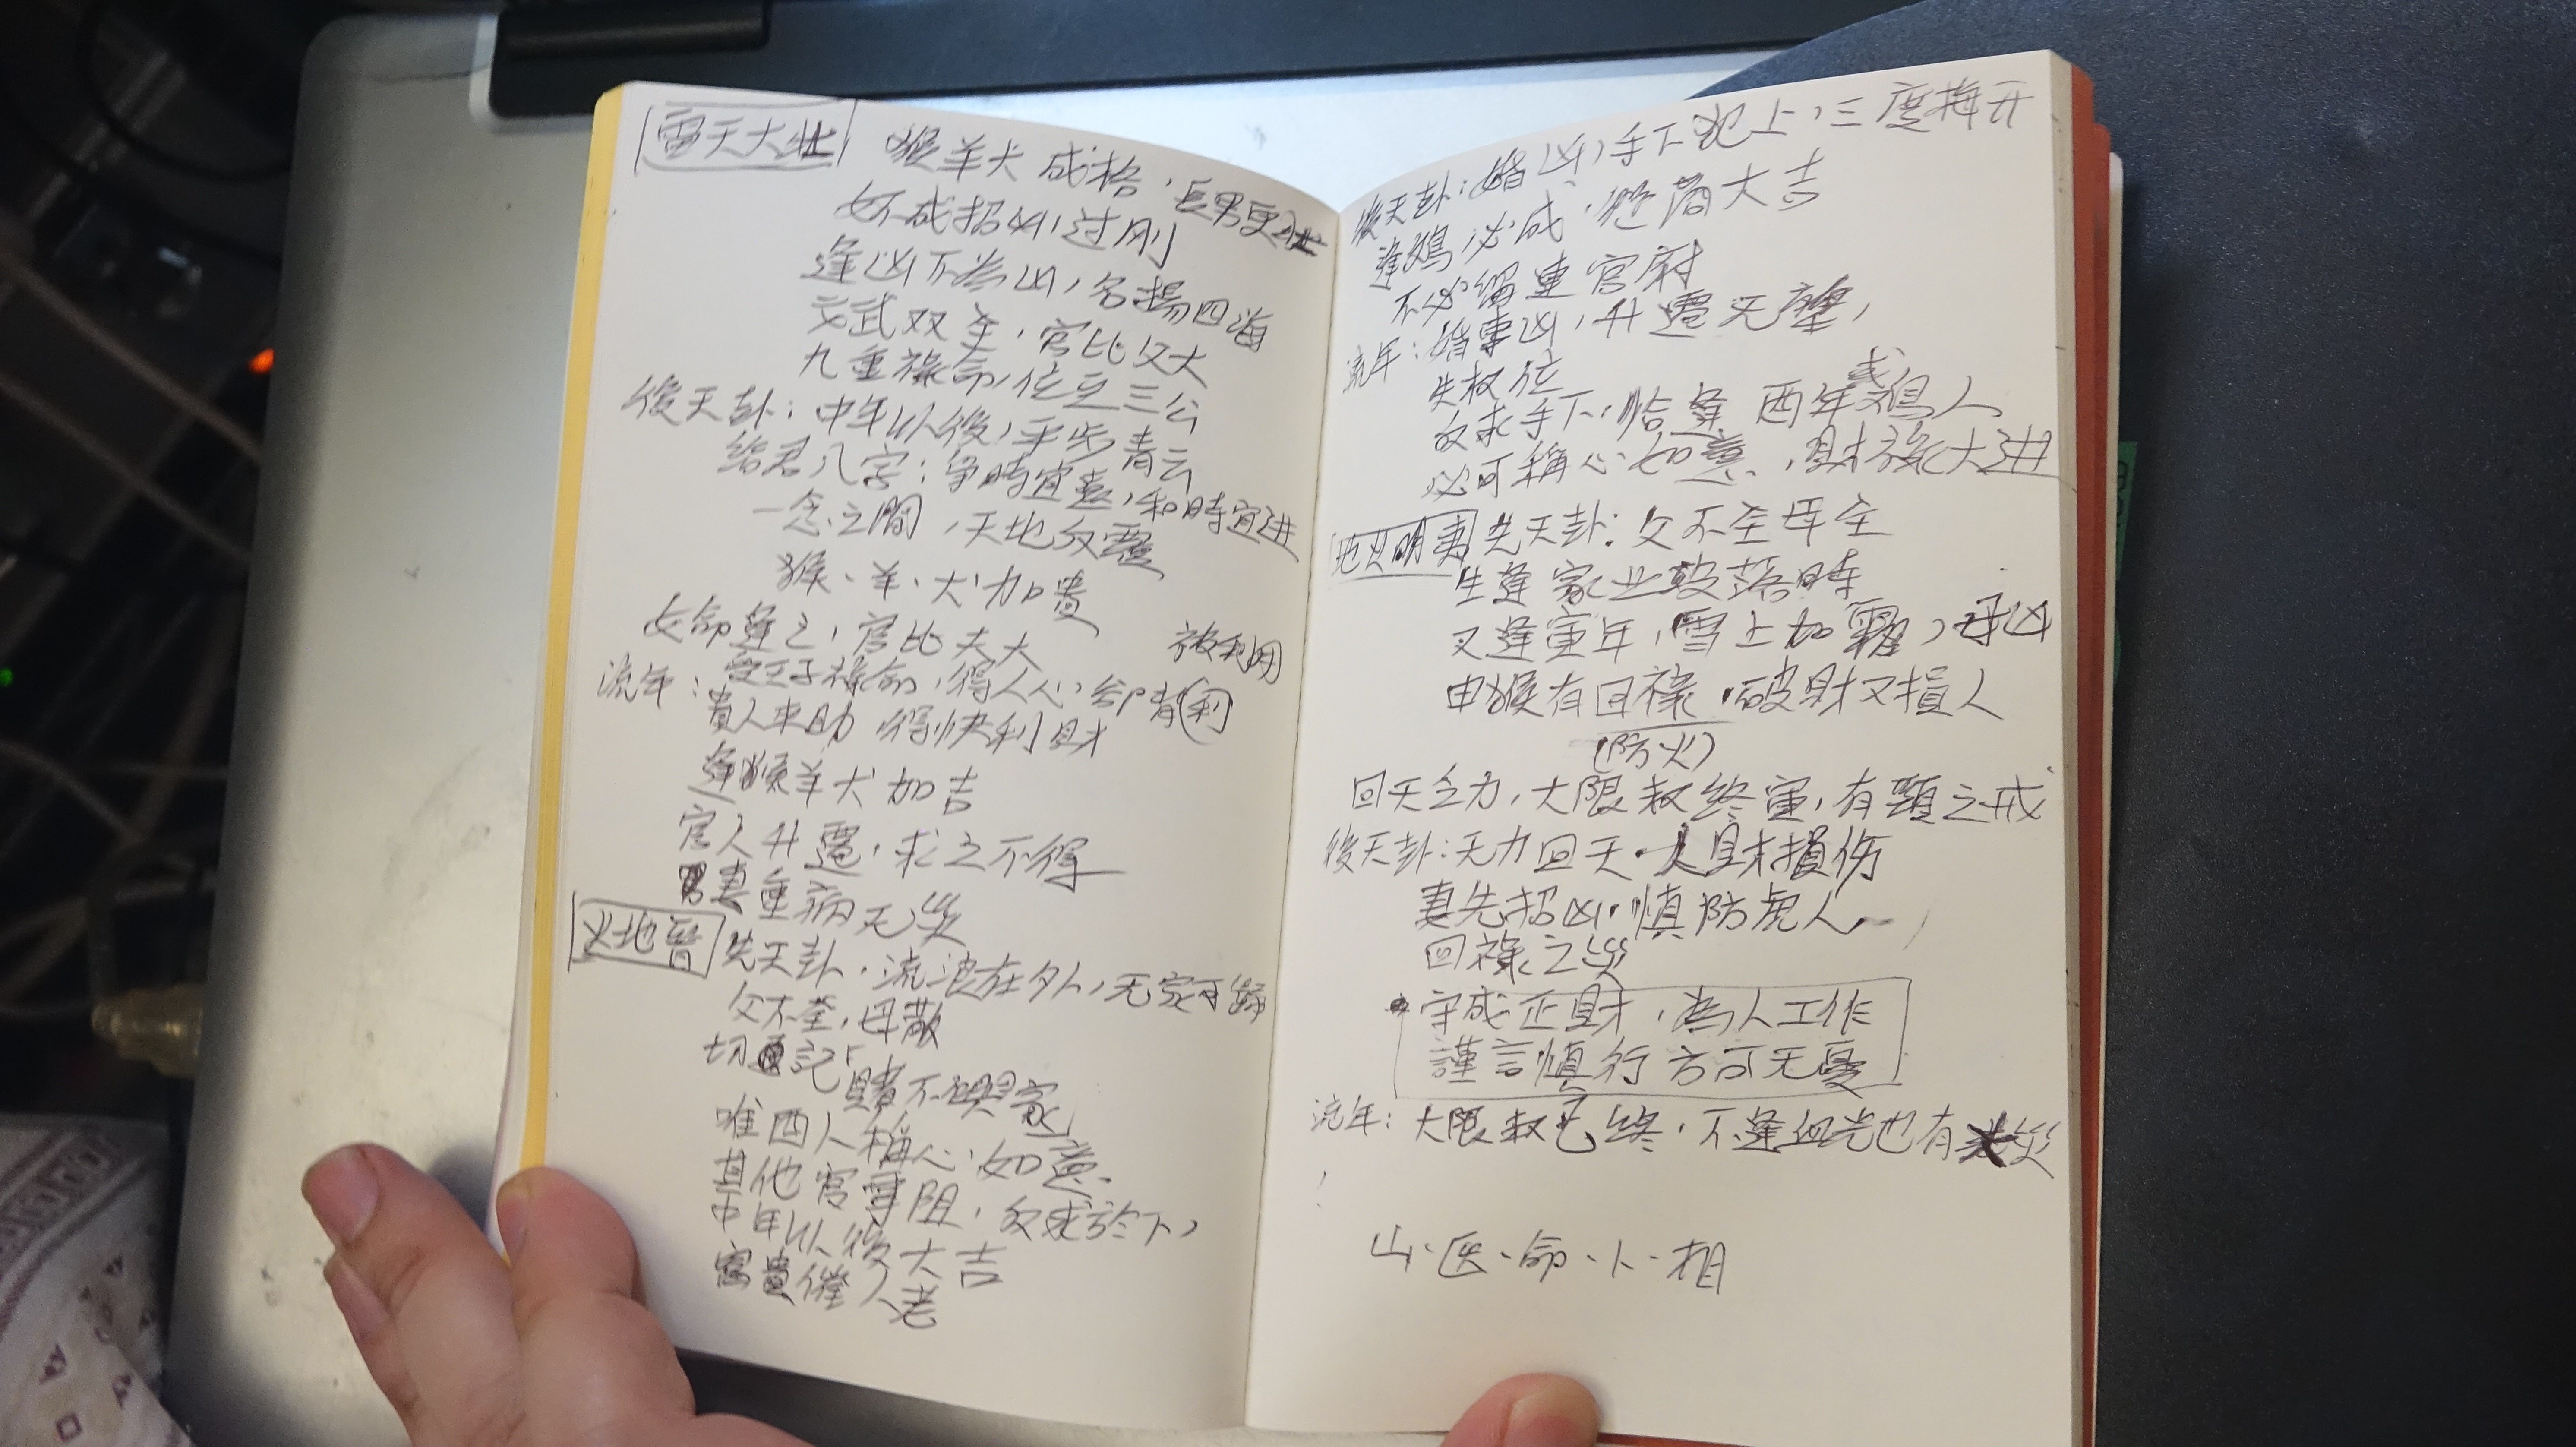 雷天大壯 猴羊犬成格，長男更壯
女不成招凶，过刚
逢凶不為凶，名揚四海
文武双全，官比父大
九重祿命，位立三公
後天卦：中年以後，平步青云
給君八字：爭時宜 ，和時宜进
一念之間，天地反覆
猴、羊、犬加貴
女命逢之，官比夫大
被利用
流年：受王子祿命，得人人心，卻背利
貴人來助 得快利財
逢猴羊犬加吉
官人升遷，求之不得
男妻重病无災
火地晉 先天卦，流浪在外，无家可歸
父不全，母散
切 記「賭不興家」
唯酉人稱心如意
其他宮 阻，反求於下，
中年以後大吉
富貴催人老
後天卦：婚凶，手下犯上，三度梅开
逢鷄必成， 大吉
不必留連官府
流年：婚事凶，升遷无望，
失权位
反求手下，恰逢酉年或鷄人
必可稱心如意，財祿大进
地火明夷 先天卦：父不全母全
生逢家业破落時
又逢寅年，雪上加霜，母凶
申猴有回祿，破財又損人
(防火)
回天乏力，大限数終寅，有 之戒
後天卦：无力回天，人財損伤
妻先招凶，慎防虎人
回祿之災
守成正財，為人工作
謹言慎行方可无憂
流年：大限数已終，不逢血光也有 災
山、医、命、卜、相